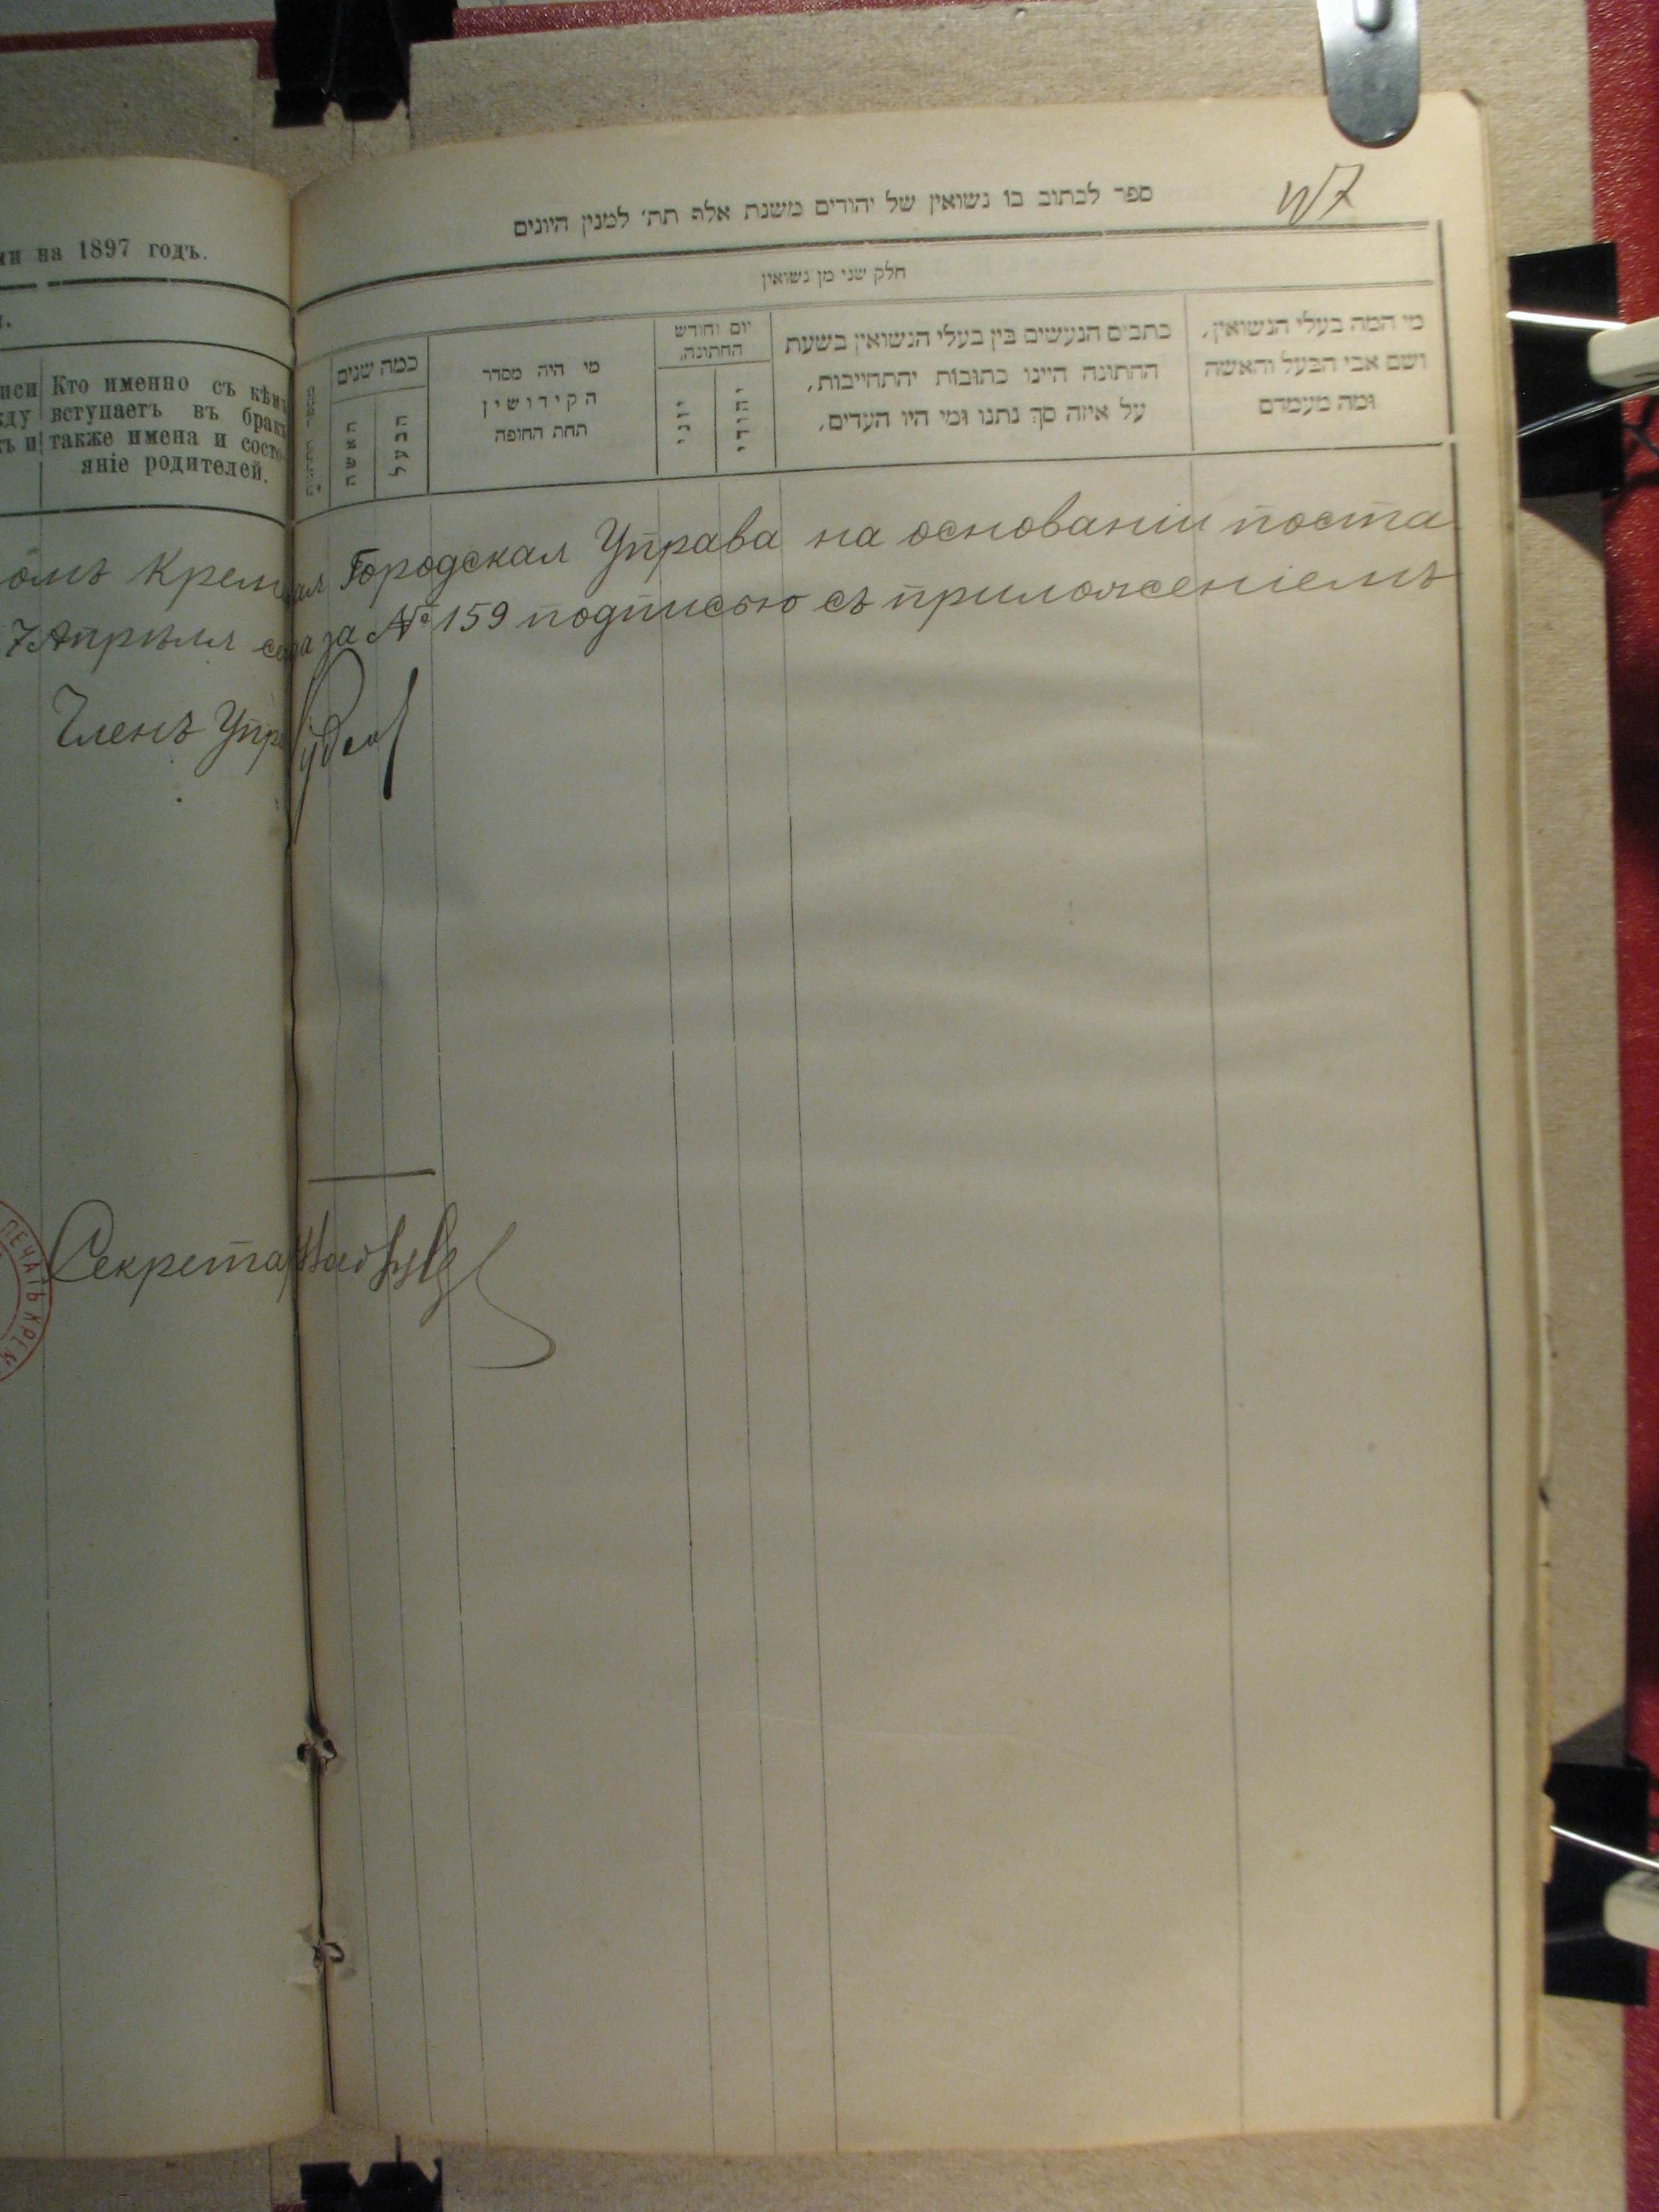 ми на 1897 годъ.
Кто именно съ кѣмъ
вступаетъ въ бракъ
также имена и состо-
яніе родителей.
ספר לכתוב בו נשואין של יהודים משנת אלף תת׳ למנין היונים
חלק שני מן נשואין
מי המה בעלי הנשואין,
ושם אבי הבעל והאשה
ומה מעמדם
כתבים הנעשים בין בעלי הנשואין בשעת
החתונה היינו כתובות יהתחייבות,
על איזה סך נתנו ומי היו העדים,
יום וחודש
החתונה,
יהודי
יוני
מי היה מסדר
הקידושין
תחת החופה
כמה שנים
הבעל
האשה
омъ Кремен Городская Управа на основаніи поста
7 Апрѣля за № 159 подписью съ приложеніемъ
Членъ Упр
Секрета
ПЕЧАТЬ КРЕМ